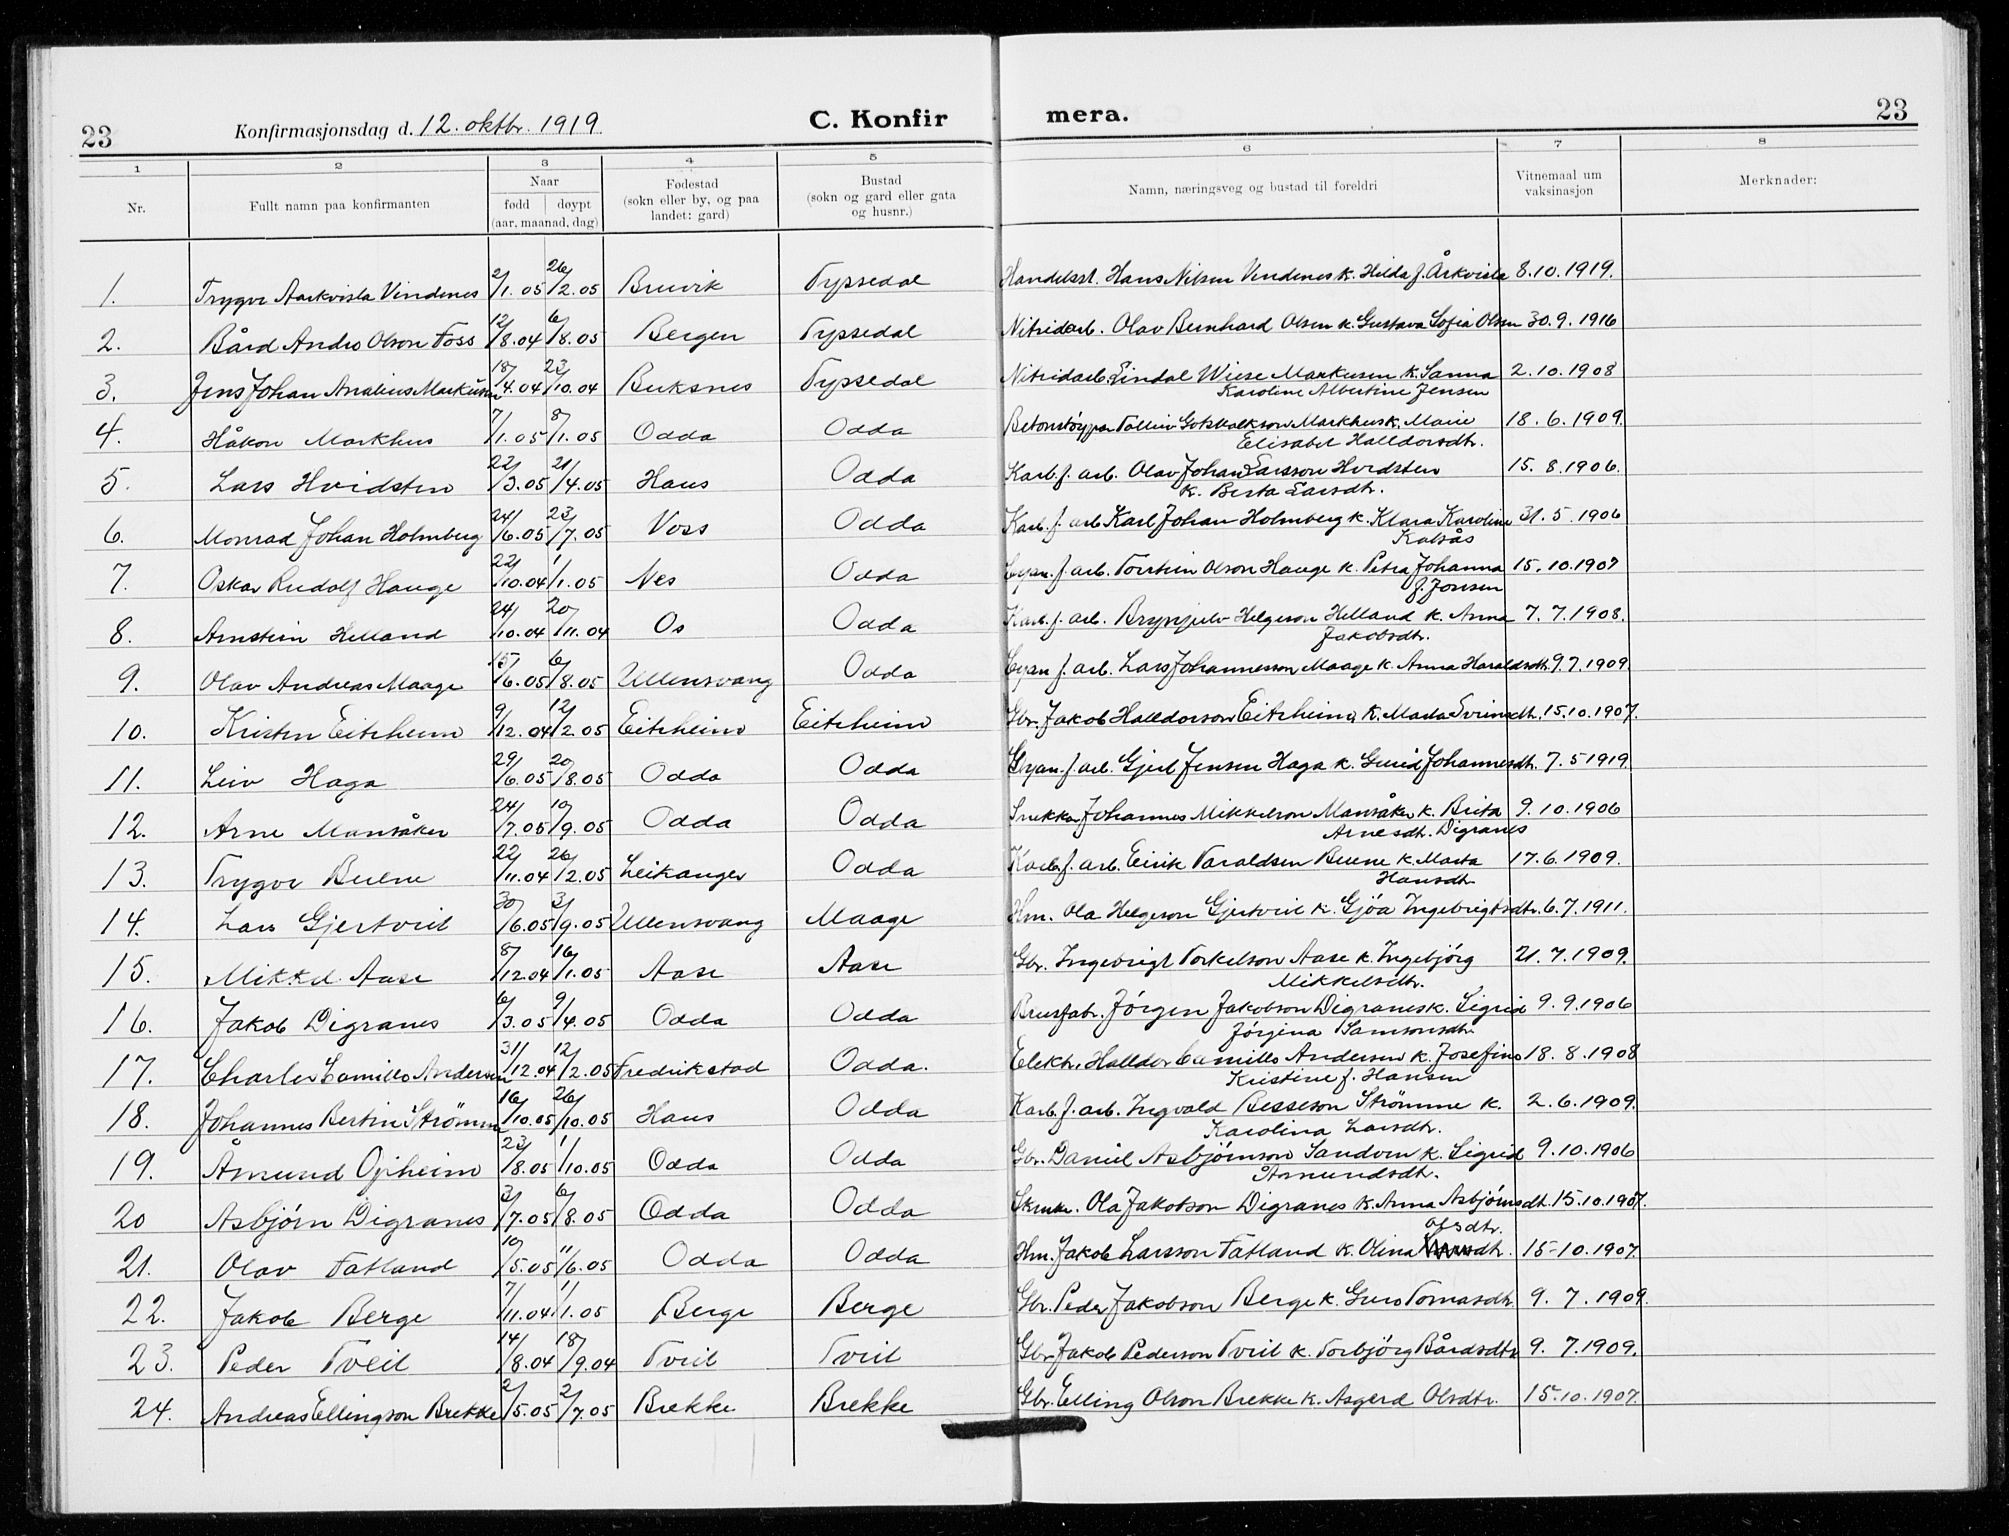 23 Konfirmasjonsdag d. 12. oktbr. 1919. C. Konfir mera. 23
1 2 3 4 5 6 7 8
Nr. Fullt namn paa konfirmanten Naar fødd døypt (aar, maanad, dag) Fødestad (sokn eller by, og paa landet: gard) Bustad (sokn og gard eller gata og husnr.) Namn, næringsveg og bustad til foreldri Vitnemaal um vaksinasjon Merknader:
1. Trygve Aarkvisla Vindenes 2/1.05 26/2.05 Bruvik Tyssedal Handelsst. Hans Nilsen Vindenes k. Hilda f. Årkvisla 8.10.1919.
2. Bård Andro Olson Foss 12/8.04 6/8.05 Bergen Tyssedal Nitridarb. Olav Bernhard Olsen k. Gustava Sofia Olsen 30.9.1916
3. Jens Johan Analius Markusen 18/4.04 23/10.04 Buksnes Tyssedal Nitridarb. Eindal Wiese Markusen k. Sanna 2.10.1908
Karoline Albertine Jensen
4. Håkon Markhus 7/1.05 8/1.05 Odda Odda Betonstøypar Tolleiv Gotskalkson Markhus k. Marie 18.6.1909.
Elisabet Halldorsdtr.
5. Lars Hvidsten 22/3.05 21/4.05 Haus Odda Karb.f. arb. Olav Johan Larsson Hvidsten 15.8.1906.
k. Berta Larsdtr.
6. Monrad Johan Holmberg 24/6.05 23/7.05 Voss Odda Karb.f. arb. Karl Johan Holmberg k. Klara Karoline 31.5.1906
Kalsås
7. Oskar Rudolf Hauge 22/10.04 1/1.05 Nes Odda Cyan.f. arb. Torstein Olson Hauge k. Petra Johanna 15.10.1907
f. Jonsen
8. Arnstein Helland 24/10.04 20/11.04 Os Odda Karb.f. arb. Brynjulv Helgeson Helland k. Anna 7.7.1908.
Jakobsdtr.
9. Olav Andreas Maage 15/6.05 6/8.05 Ullensvang Odda Cyan.f. arb. Lars Johannesson Maage k. Anna Haraldsdtr. 9.7.1909.
10. Kristen Eitrheim 9/12.04 12/2.05 Eitrheim Eitrheim Gbr. Jakob Halldorson Eitrheim k. Marta Sveinsdtr. 15.10.1907.
11. Leiv Haga 29/6.05 20/8.05 Odda Odda Cyan.f. arb. Gjert Jensen Haga k. Gurid Johannesdtr. 7.5 1919.
12. Arne Mansåker 24/7.05 10/9.05 Odda Odda Snekkar Johannes Mikkelson Mansåker k. Brita 9.10.1906
Arnesdtr. Digranes
13. Trygve Buene 22/11.04 26/2.05 Leikanger Odda Karb.f. arb. Eirik Taraldsen Buene k. Marta 17.6.1909.
Hansdtr.
14. Lars Gjertveit 30/6.05 3/9.05 Ullensvang Maage Hm. Ola Helgeson Gjertveit k. Gjöa Ingebrigtsdtr. 6.7.1911.
15. Mikkel Aase 8/12.04 16/1.05 Aase Aase Gbr. Ingebrigt Torkelson Aase k. Ingebjörg 21.7.1909.
Mikkelsdtr.
16. Jakob Digranes 6/3.05 9/4.05 Odda Odda Brusfabr. Jörgen Jakobson Digranes k. Sigrid 9.9.1906
Jörgina Samsonsdtr.
17. Charles Camillo Andersen 31/12.04 12/2.05 Fredrikstad Odda. Elektr. Halldor Camillo Andersen k. Josefine 18.8.1908
Kristine f. Hansen
18. Johannes Bertin Strömme 16/10.05 26/10.05 Haus Odda Karb.f. arb. Ingvald Besseson Strömme k. 2.6.1909.
Karolina Larsdtr.
19. Åmund Opheim 23/8.05 1/10.05 Odda Odda Gbr. Daniel Asbjörnson Sandven k. Sigrid 9.10.1906
Åmundsdtr.
20 Asbjörn Digranes 3/7.05 6/8.05 Odda Odda Skruke. Ola Jakobson Digranes k. Anna Asbjörnsdtr. 15.10.1907.
21. Olav Tatland 10/5.05 11/6.05 Odda Odda Hm. Jakob Larsson Tatland k. Olina Olsdtr. 15.10.1907.
22. Jakob Berge 7/11.04 1/1.05 Berge Berge Gbr. Peder Jakobson Berge k. Guro Tomasdtr. 9.7.1909.
23. Peder Tveit 14/8.04 18/9.04 Tveit Tveit Gbr. Jakob Pederson Tveit k. Torbjörg Bårdsdtr. 9.7.1909.
24. Andreas Ellingson Brekke 2/5.05 2/7.05 Brekke Brekke Gbr. Elling Olson Brekke k. Asgerd Olsdtr. 15.10.1907.